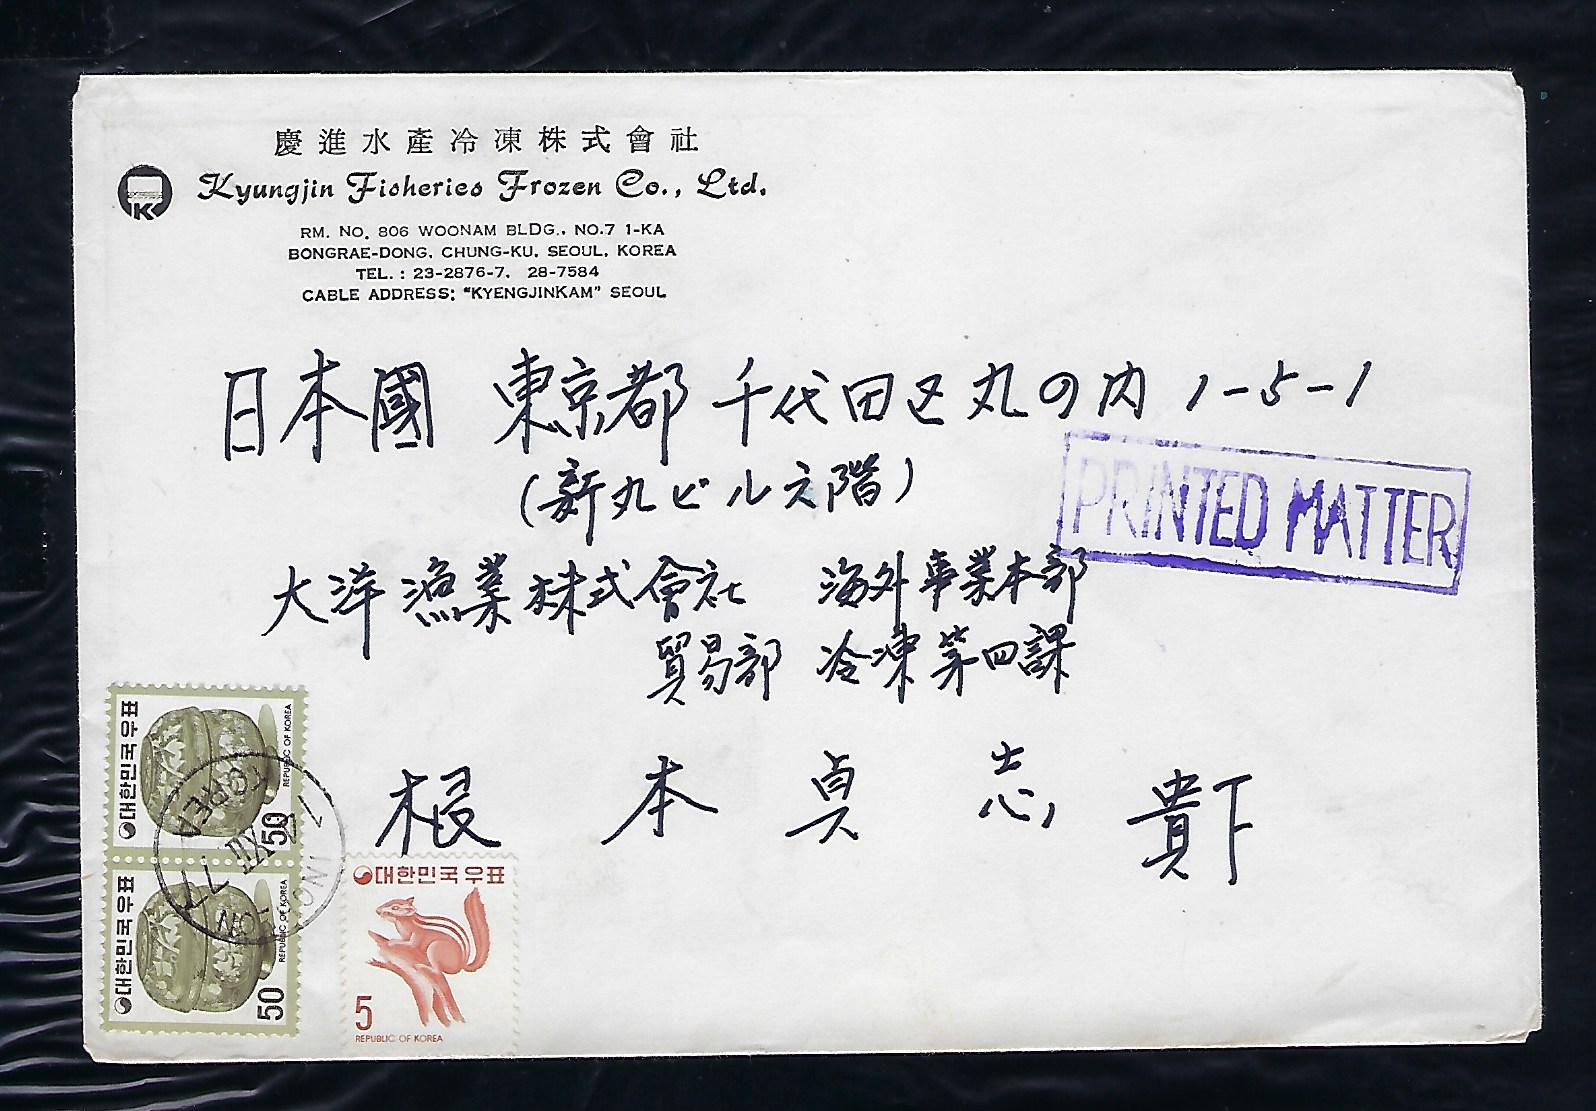 慶進水產冷凍株式會社
Kyungjin Fisheries Frozen Co., Ltd.
K
RM. NO. 806 WOONAM BLDG., NO.7 1-KA
BONGRAE-DONG, CHUNG-KU, SEOUL, KOREA
TEL. : 23-2876-7, 28-7584
CABLE ADDRESS: "KYENGJINKAM" SEOUL
日本國 東京都 千代田区丸の内 1-5-1
(新丸ビル六階)
PRINTED MATTER
大洋漁業株式會社 海外事業本部
貿易部 冷凍第四課
根本貞志 貴下
대한민국우표
REPUBLIC OF KOREA
50
대한민국우표
REPUBLIC OF KOREA
50
XII 77
대한민국우표
5
REPUBLIC OF KOREA